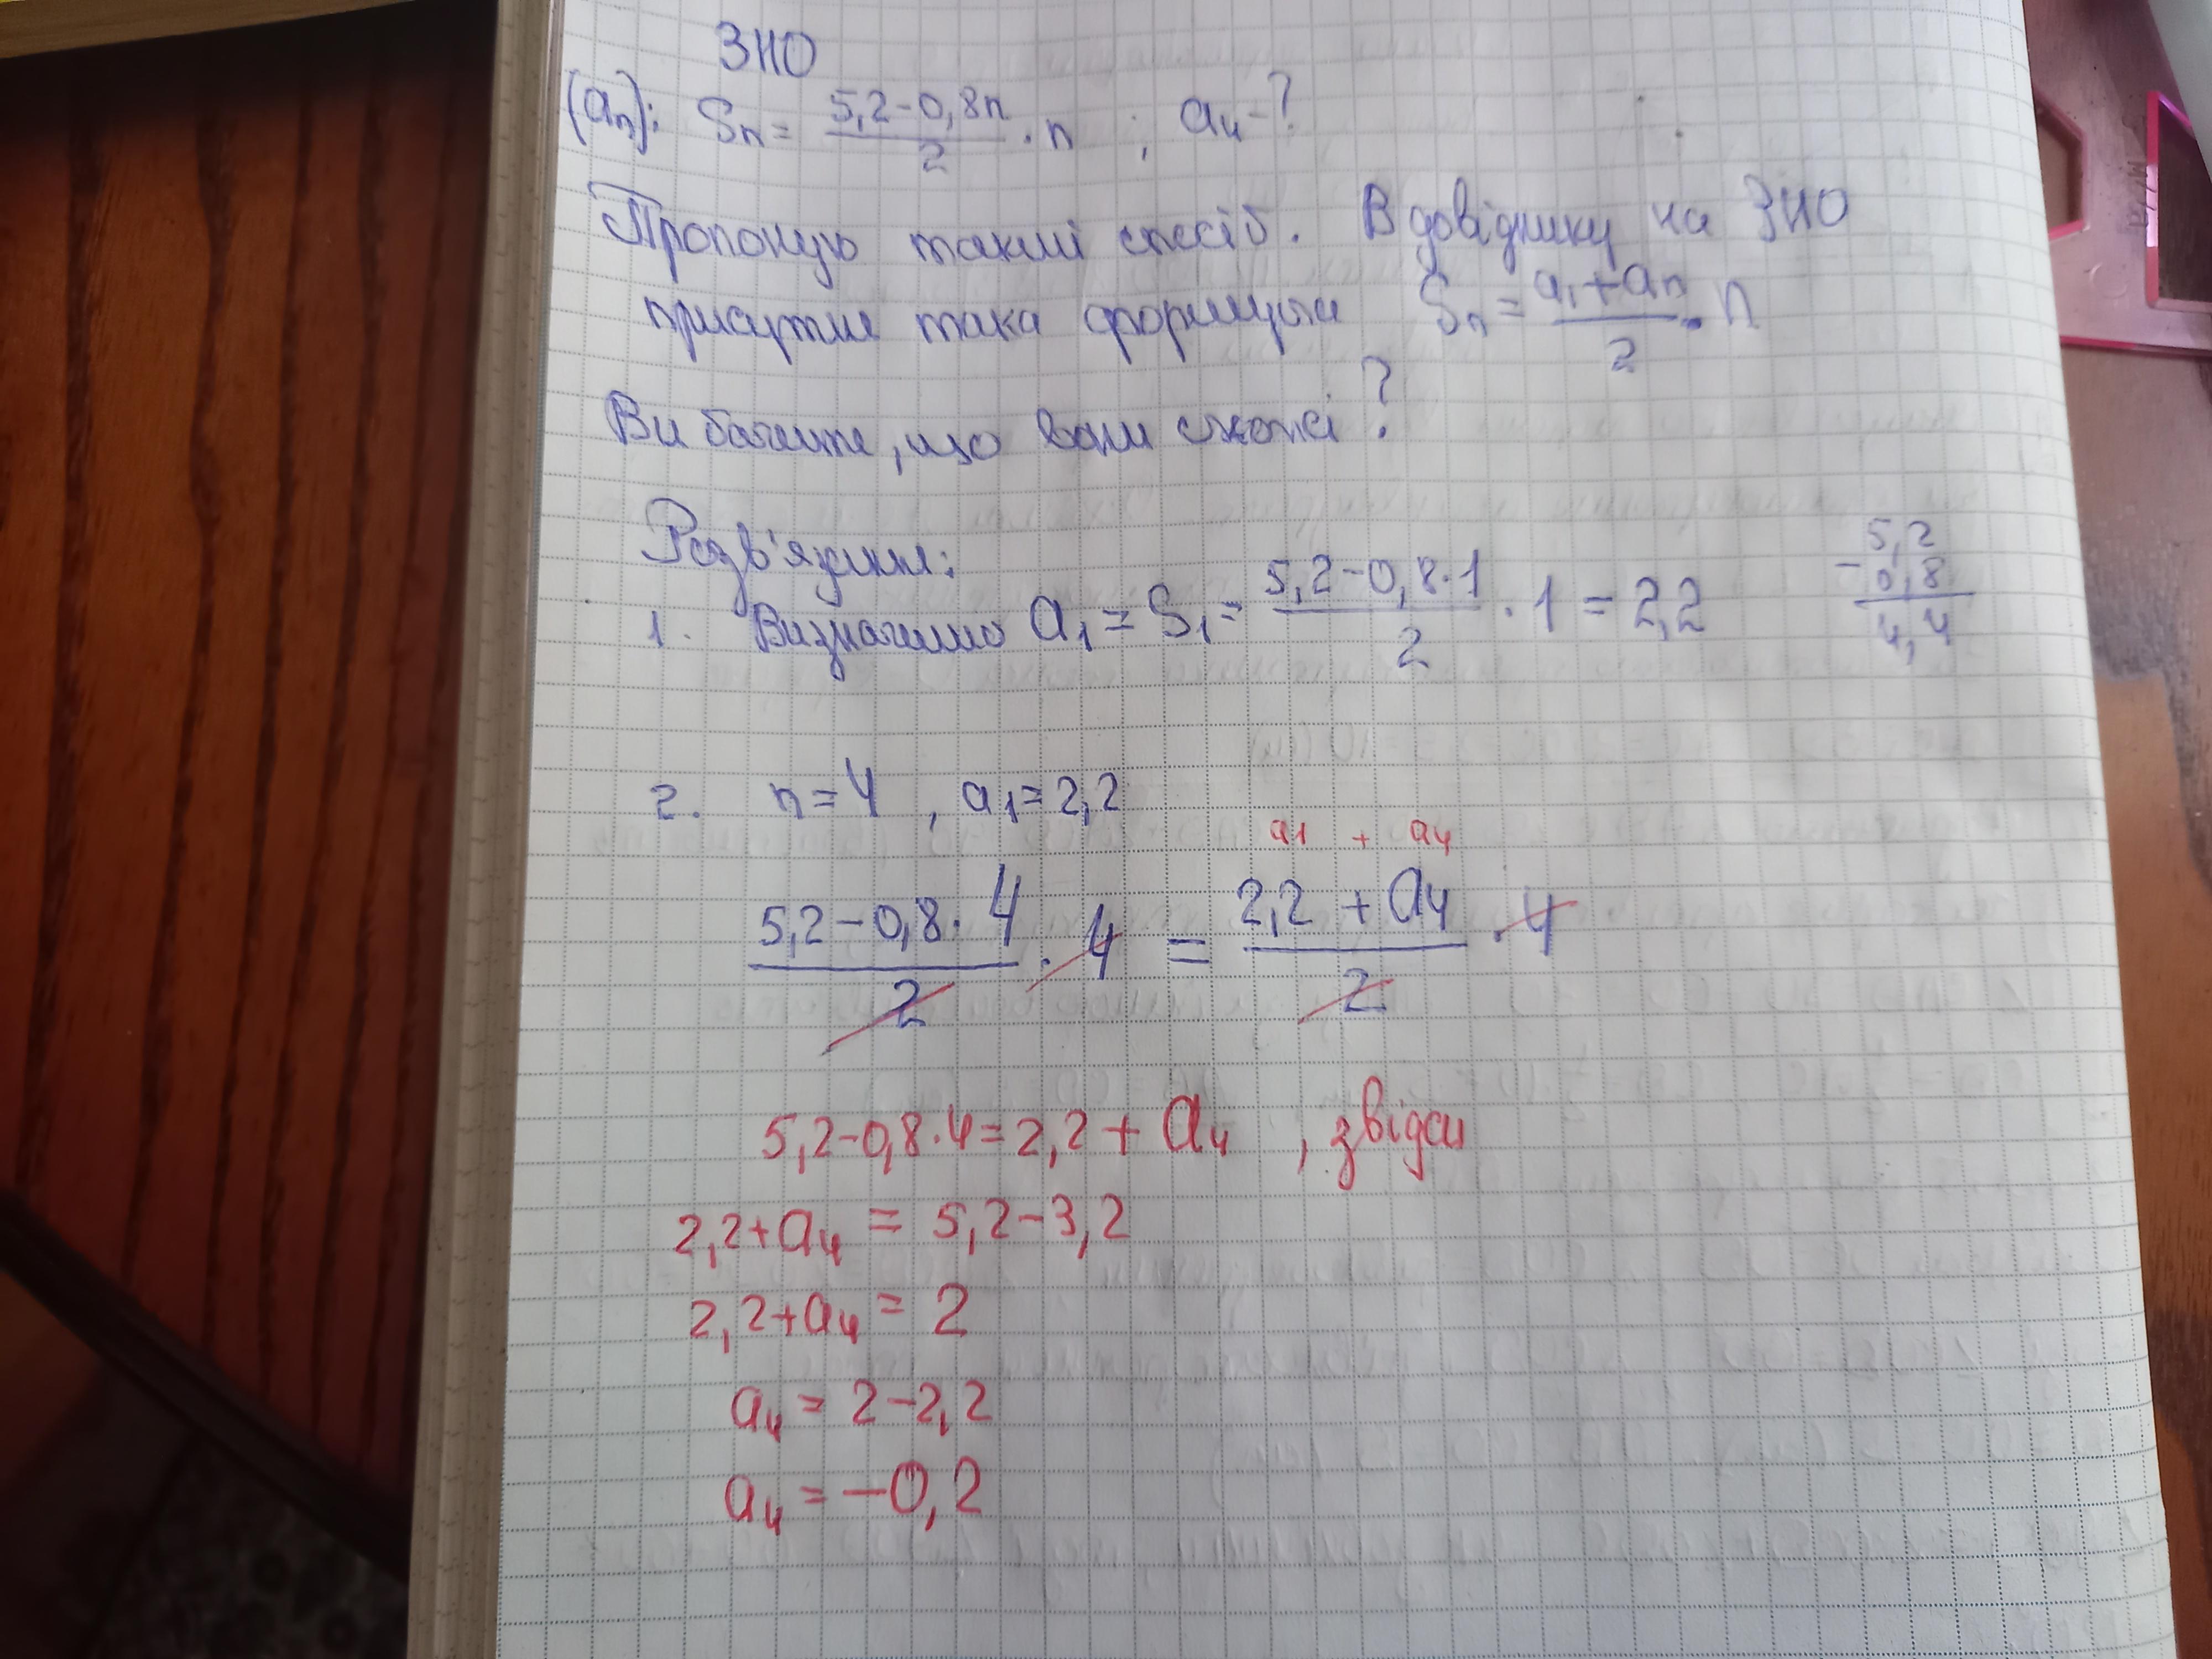 ЗНО
(aₙ): Sₙ = (5,2-0,8n)/2 · n ; a₄-?
Пропоную такий спосіб. В довіднику на ЗНО
присутня така формула Sₙ = (a₁+aₙ)/2 · n
Ви бачите, що вони схожі?
Розв'язання:
1. Визначимо a₁ = S₁ = (5,2-0,8·1)/2 · 1 = 2,2
5,2
- 0,8
4,4
2. n=4 , a₁=2,2
a₁ + a₄
(5,2-0,8·4)/2 · 4 = (2,2 + a₄)/2 · 4
5,2-0,8·4=2,2+a₄ , звідси
2,2+a₄ = 5,2-3,2
2,2+a₄ = 2
a₄ = 2-2,2
a₄ = -0,2